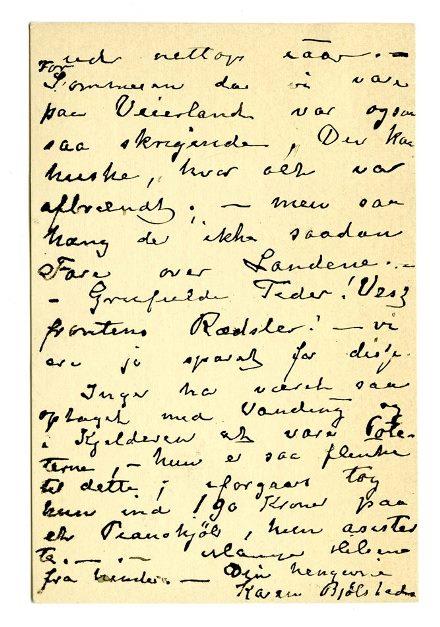 ude nettop iaar. —
For Sommeren da vi var
paa Veierland var ogsaa
saa skrigende, Du kan
huske, hvor alt var
afbrændt; — men saa
hang der ikke saadan
Fare over Landene. —
— Grufulde Tider! Vest
frontens Rædsler! — vi
ere jo sparet for disse.
Inger har været saa
optaget med Vanding og
i Kjelderen at vare Pote-
terne, — hun er saa flinke
til dette; iforgaars tog
hun ind 190 Kroner paa
et Pianohjól, hun assister
te. — . — Mange Hilsener
fra hende. — Din hengivne
Karen Bjölstad